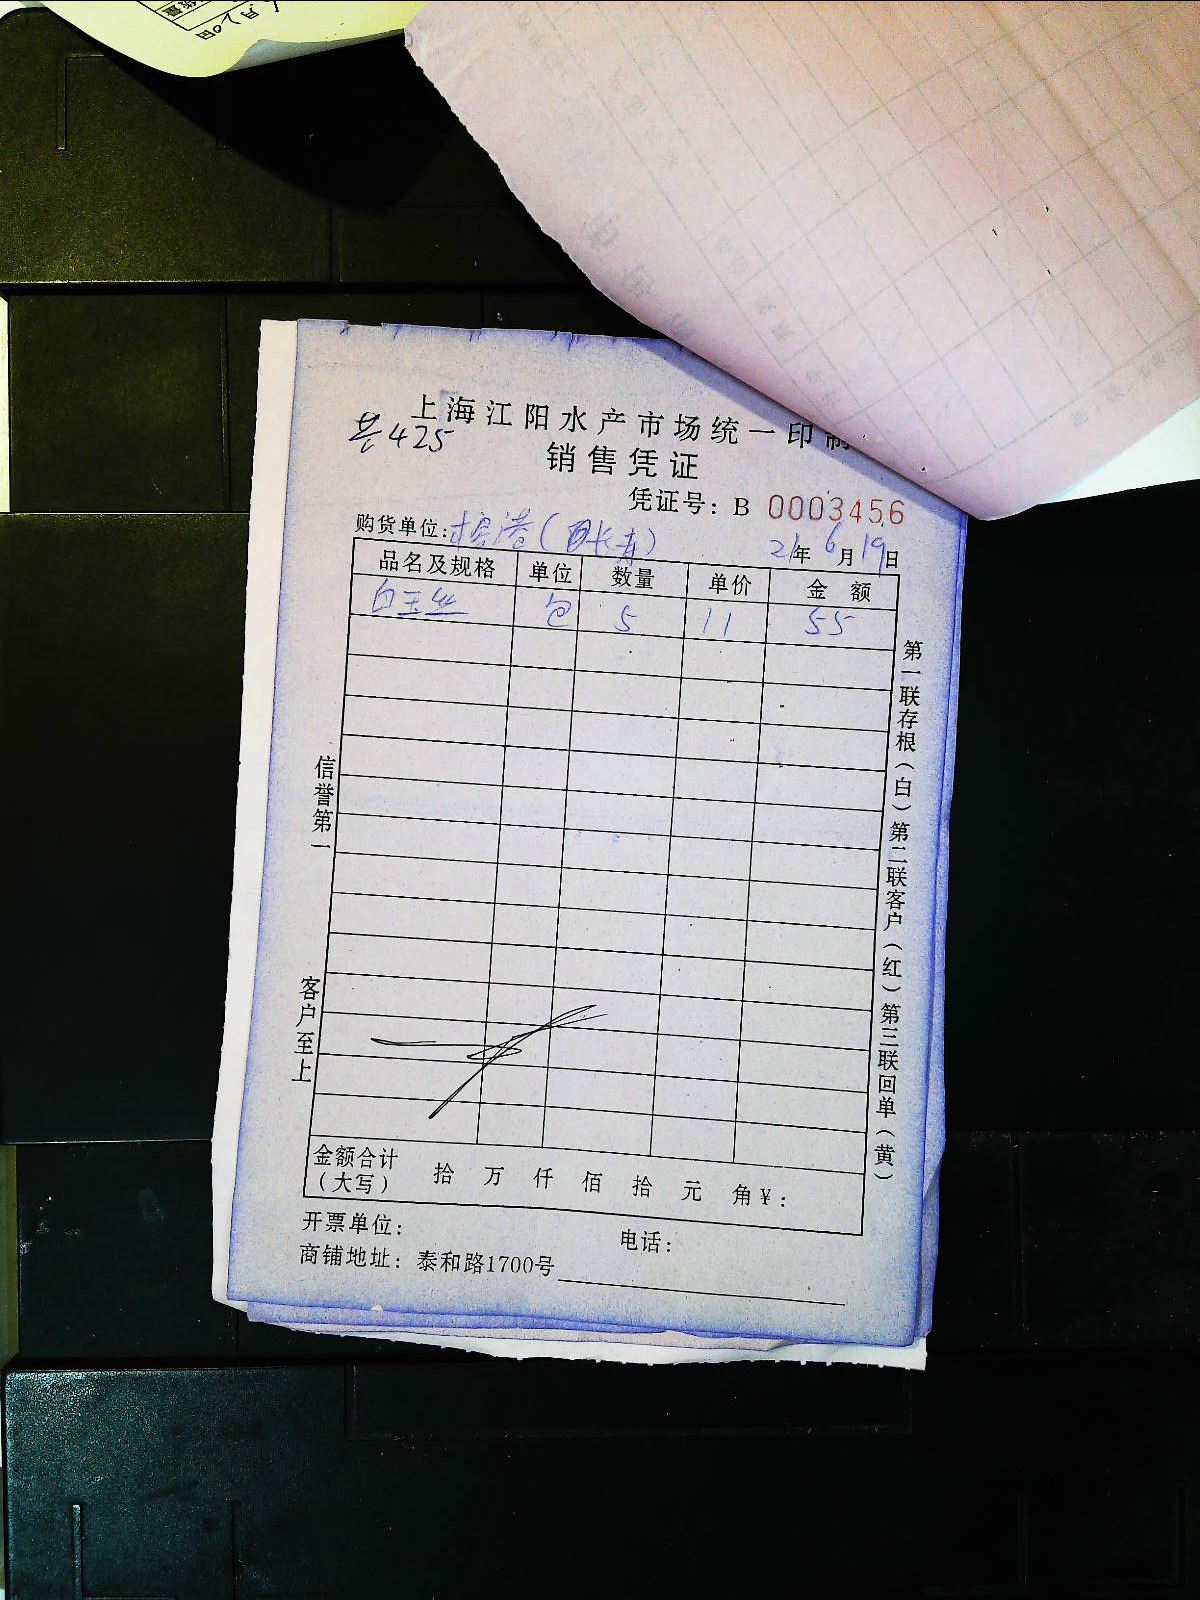 上海江阳水产市场统一印制
共425
销售凭证
凭证号：B 0003456
购货单位：
21年6月19日
品名及规格 单位 数量 单价 金额
白玉丝 包 5 11 55
第一联存根（白）第二联客户（红）第三联回单（黄）
信誉第一
客户至上
金额合计（大写） 拾 万 仟 佰 拾 元 角 ¥：
开票单位： 电话：
商铺地址：泰和路1700号